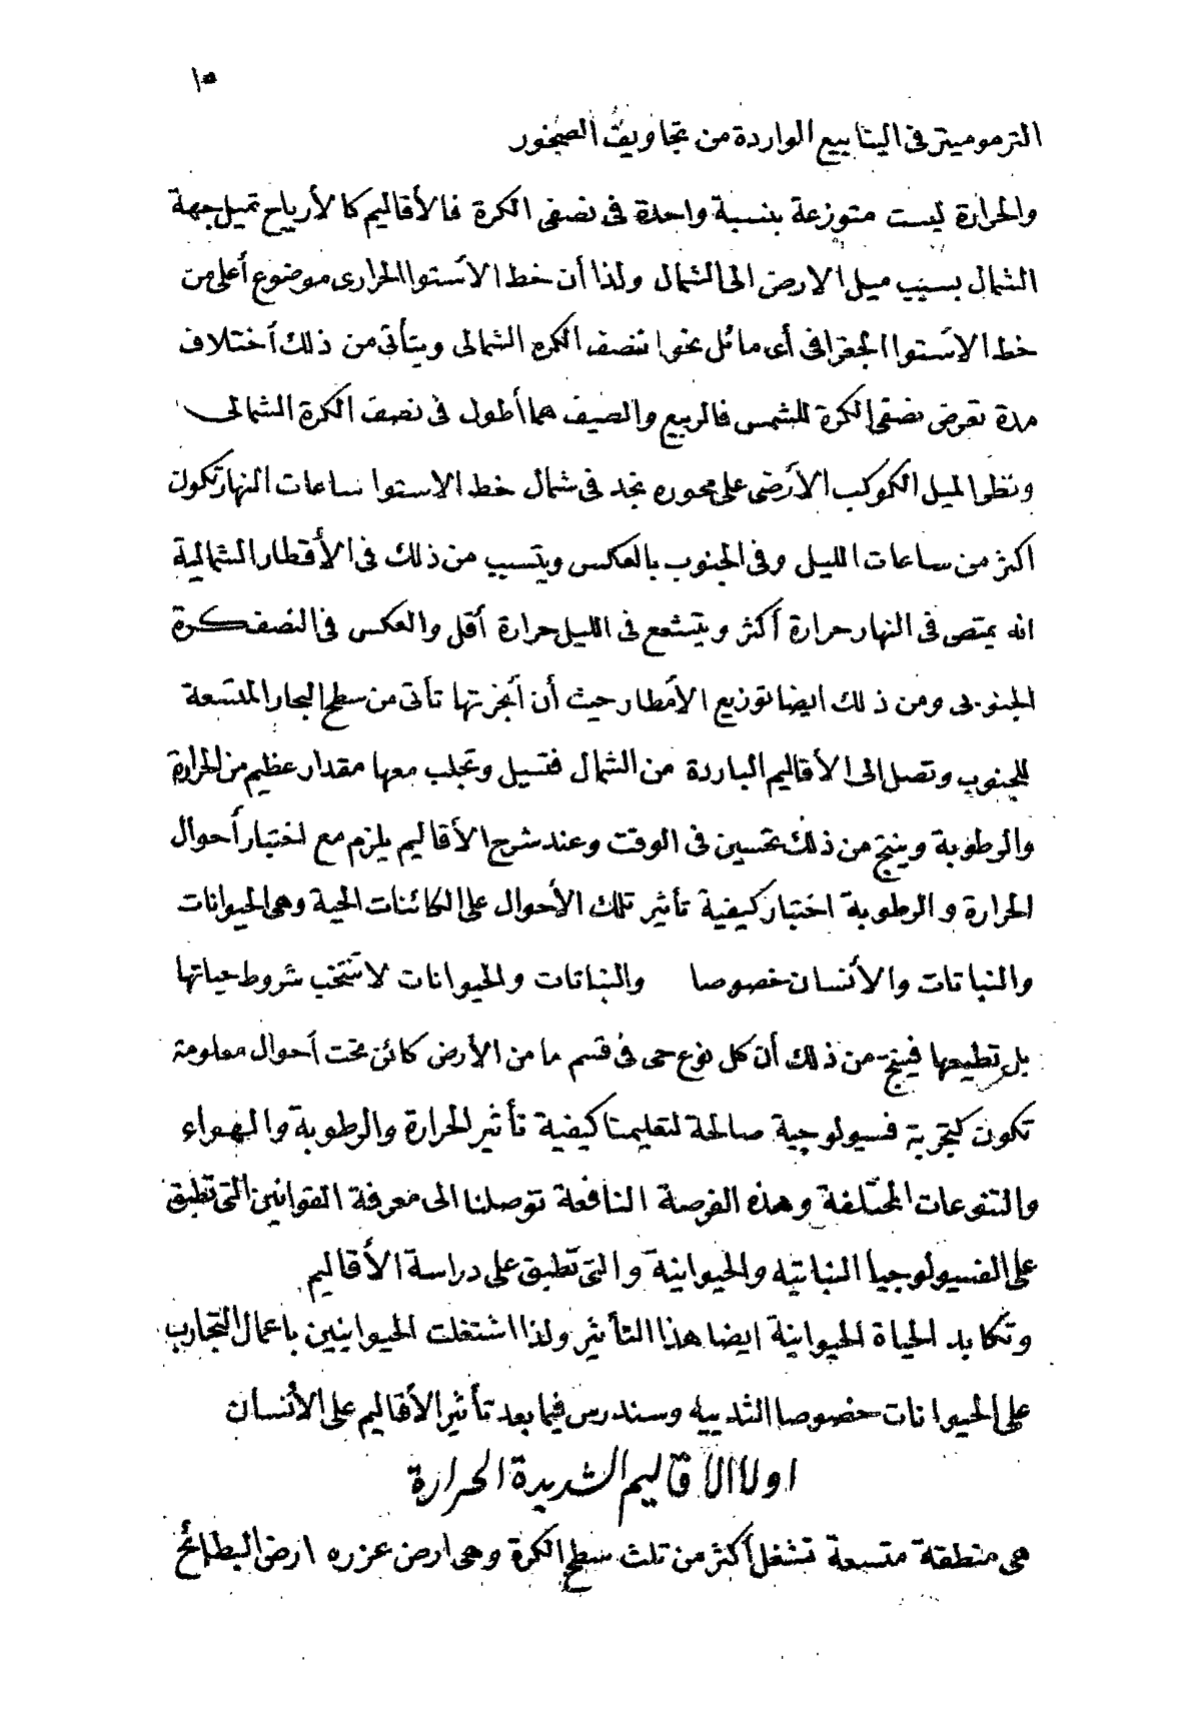 ١٥
الترموميتر فى الينابيع الواردة من تجاويف الصخور
والحرارة ليست متوزعة بنسبة واحدة فى نصفى الكرة فالأقاليم كالأرياح تميل جهة
الشمال بسبب ميل الارض الى الشمال ولذا أن خط الأستوا الحرارى موضوع أعلى من
خط الأستوا الجغرافى أى مائل نحوا لنصف الكره الشمالى ويتأتى من ذلك أختلاف
مدة تعرض نصفى الكرة للشمس فالربيع والصيف هما أطول فى نصف الكرة الشمالى
ونظرا لميل الكوكب الأرضى على محوره نجد فى شمال خط الاستوا ساعات النهار تكون
اكثر من ساعات الليل وفى الجنوب بالعكس ويتسبب من ذلك فى الأقطار الشمالية
انه يمتص فى النهار حرارة أكثر ويتشعع فى الليل حرارة أقل والعكس فى النصف كرة
الجنوبى ومن ذلك ايضا توزيع الأمطار حيث أن أبخرتها تأتى من سطح البحار المتسعة
للجنوب وتصل الى الأقاليم الباردة من الشمال فتسيل وتجلب معها مقدار عظيم من الحرارة
والرطوبة وينتج من ذلك تحسين فى الوقت وعند شرح الأقاليم يلزم مع اختبار أحوال
الحرارة والرطوبة اختبار كيفية تأثير تلك الأحوال على الكائنات الحية وهى الحيوانات
والنباتات والأنسان خصوصا والنباتات والحيوانات لا تنتخب شروط حياتها
بل تطيعها فينتج من ذلك أن كل نوع حى فى قسم ما من الأرض كائن تحت أحوال معلومة
تكون كتجربة فسيولوجية صالحة لتعليمنا كيفية تأثير الحرارة والرطوبة والهواء
والتنوعات المختلفة وهذه الفرصة النافعة توصلنا الى معرفة القوانين التى تطبق
على الفسيولوجيا النباتيه والحيوانية والتى تطبق على دراسة الأقاليم
وتكابد الحياة الحيوانية ايضا هذا التأثير ولذا اشتغلت الحيوانيين باعمال التجارب
على الحيوانات خصوصا الثدييه وسندرس فيما بعد تأثير الأقاليم على الأنسان
اولا الأقاليم الشديدة الحرارة
هى منطقة متسعة تشغل أكثر من ثلث سطح الكرة وهى ارض عزره ارض البطائح